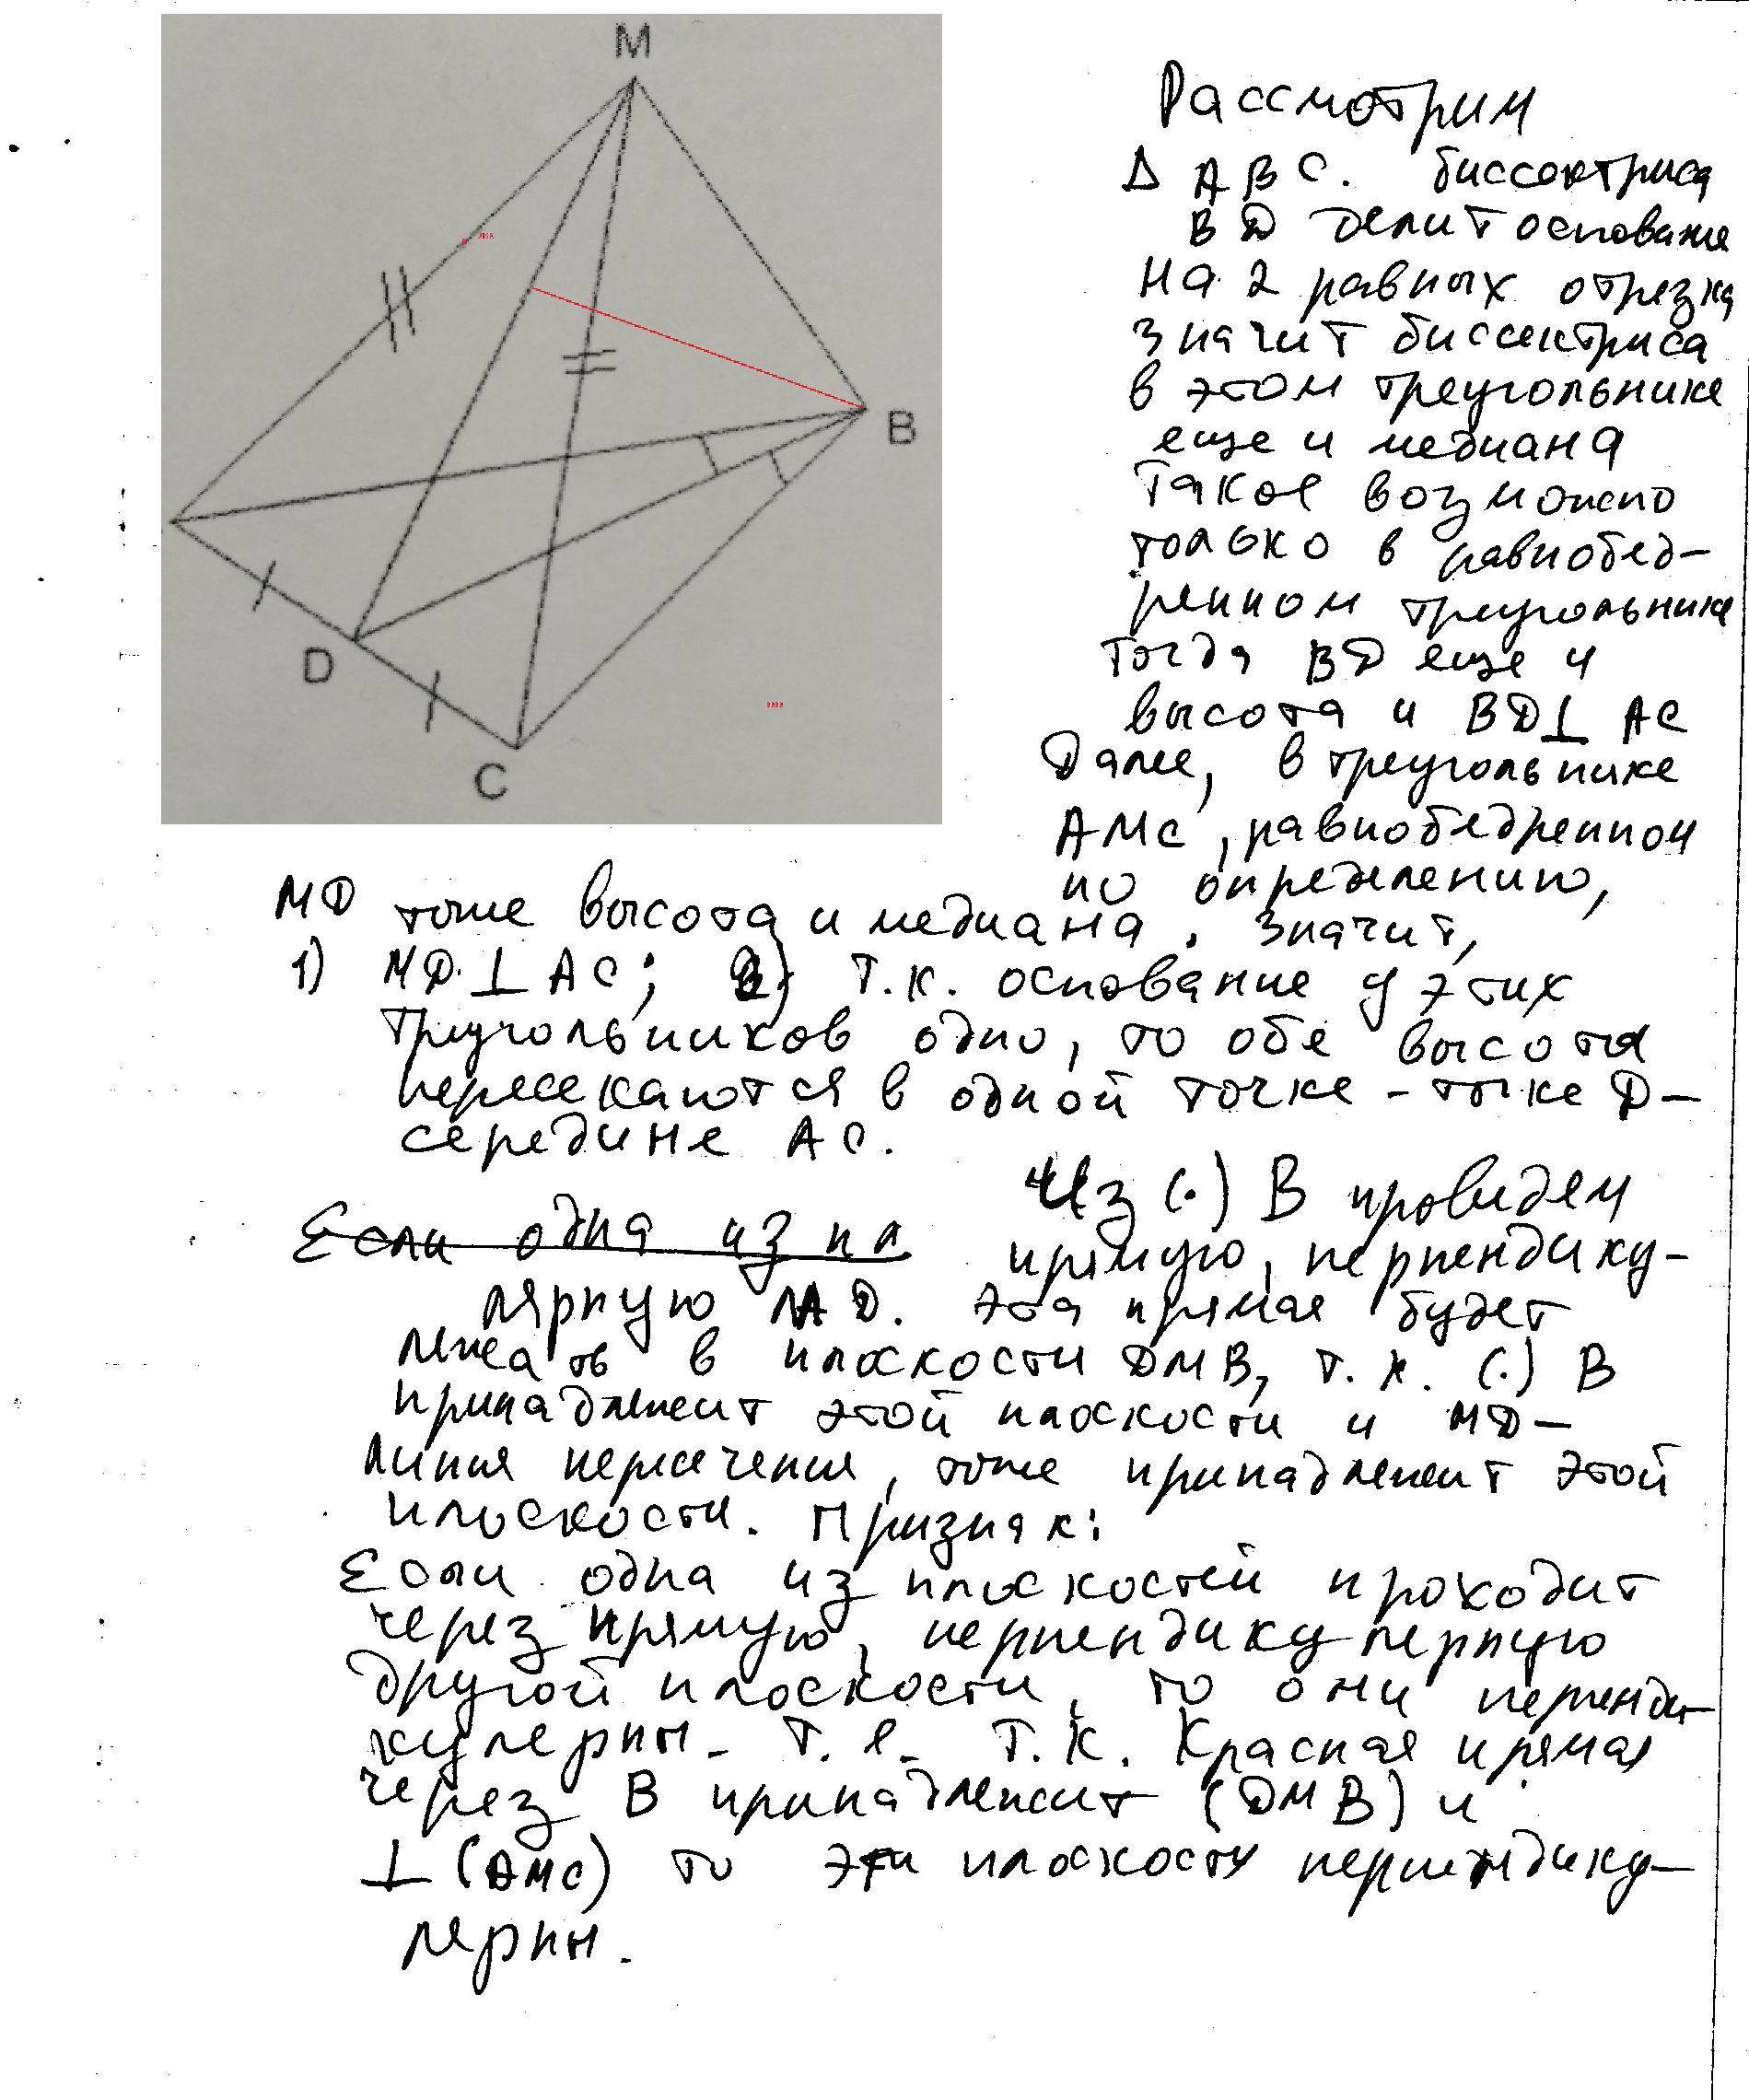 M
B
D
C
Рассмотрим
Δ ABC. биссектриса
BD делит основание
на 2 равных отрезка
значит биссектриса
в этом треугольнике
еще и медиана
Такое возможно
только в равнобед-
ренном треугольнике
Тогда BD еще и
высота и BD⊥ AC
Далее, в треугольнике
AMC, равнобедренном
по определению,
MD тоже высота и медиана. Значит,
1) MD ⊥ AC; 2) Т.к. основание у этих
треугольников одно, то обе высоты
пересекаются в одной точке - точке D-
середине AC.
Из (.) B проведем
Если одна из пл
прямую, перпендику-
лярную MD. Эта прямая будет
лежать в плоскости DMB, т.к. (.) B
принадлежит этой плоскости и MD-
линия пересечения, тоже принадлежит этой
плоскости. Признак:
Если одна из плоскостей проходит
через прямую, перпендикулярную
другой плоскости, то они перпенди-
кулярны. Т.е. Т.К. Красная прямая
через B принадлежит (DMB) и
⊥ (AMC) то эти плоскости перпендику-
лярны.